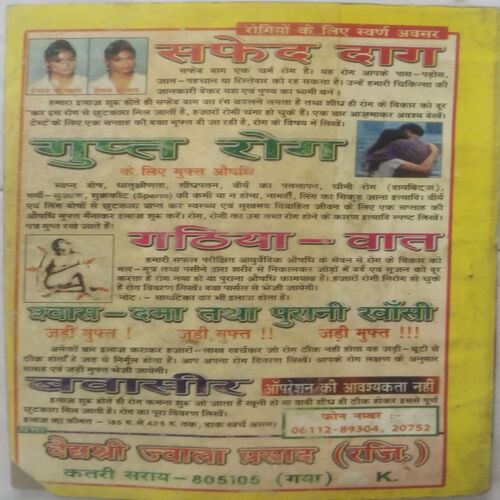 रोगियों के लिए स्वर्ण अवसर
सफेद दाग
सफेद दाग एक चर्म रोग है। यह रोग आपके पास-पड़ोस,
जान-पहचान या रिस्तेदार को रह सकता है। उन्हें हमारी चिकित्सा की
जानकारी देकर यश एवं पुण्य का भागी बनें।
हमारा इलाज शुरू होते ही सफेद दाग का रंग बदलने लगता है तथा शीघ्र ही रोग के विकार को दूर
कर इस रोग से छुटकारा मिल जाती है, हजारों रोगी चंगा हो चुके हैं। एक बार आजमाकर अवश्य देखें।
टेस्ट के लिए एक सप्ताह की दवा मुफ्त दी जा रही है, रोग के विषय में लिखें।
गुप्त रोग
के लिए मुफ्त औषधि
स्वप्न दोष, धातुक्षीणता, शीघ्रपतन, वीर्य का पतलापन, चीनी रोग (डायबिटज),
गर्मी-सुजाक, शुक्रकीट (Sperm) की कमी या न होना, नामर्दी, लिंग का सिकुड़ जाना इत्यादि। वीर्य
एवं लिंग दोषों से छुटकारा प्राप्त कर स्वास्थ्य एवं सुखमय विवाहित जीवन के लिए एक सप्ताह की
औषधि मुफ्त मँगाकर इलाज शुरू करें। रोग, रोगी का उम्र तथा रोग होने के कारण इत्यादि स्पष्ट लिखें।
पत्र गुप्त रखे जाते हैं।
गठिया - वात
हमारी सफल परीक्षित आयुर्वेदिक औषधि के सेवन से रोग के विकार को
मल-मूत्र तथा पसीने द्वारा शरीर से निकालकर जोड़ों में दर्द एवं सूजन को दूर
करता है रोग नया हो या पुराना औषधि कामयाब है। हजारों रोगी निरोग हो चुके
हैं रोग विवरण लिखें। दवा पार्सल से भेजी जायेगी।
नोट :- सायटिका का भी इलाज होता है।
श्वास-दमा तथा पुरानी खाँसी
जड़ी मुफ्त ! जड़ी मुफ्त !! जड़ी मुफ्त !!!
अनेकों बार इलाज कराकर हजारों-लाख खर्चकर जो रोग ठीक नहीं होता वह जड़ी-बूटी से
ठीक होता है जड़ से निर्मूल होता है। आप अपना रोग विवरण लिखें। आपके रोग लक्षण के अनुसार
सलाह एवं जड़ी मुफ्त भेजी जायेगी।
बवासीर ऑपरेशन की आवश्यकता नहीं
इलाज शुरू होते ही रोग कमना शुरू हो जाता है खूनी हो या वादी शीघ्र ही ठीक होकर इससे पूर्ण
छुटकारा मिल जाती है। रोग का पूरा विवरण लिखें।
इलाज का कीमत - 185 रू. से 425 रू. तक, डाक खर्च अलग।
फोन नम्बर :-
06112-89304, 20752
वैद्यश्री ज्वाला प्रसाद (रजि.)
कतरी सराय-805105 (गया) K.